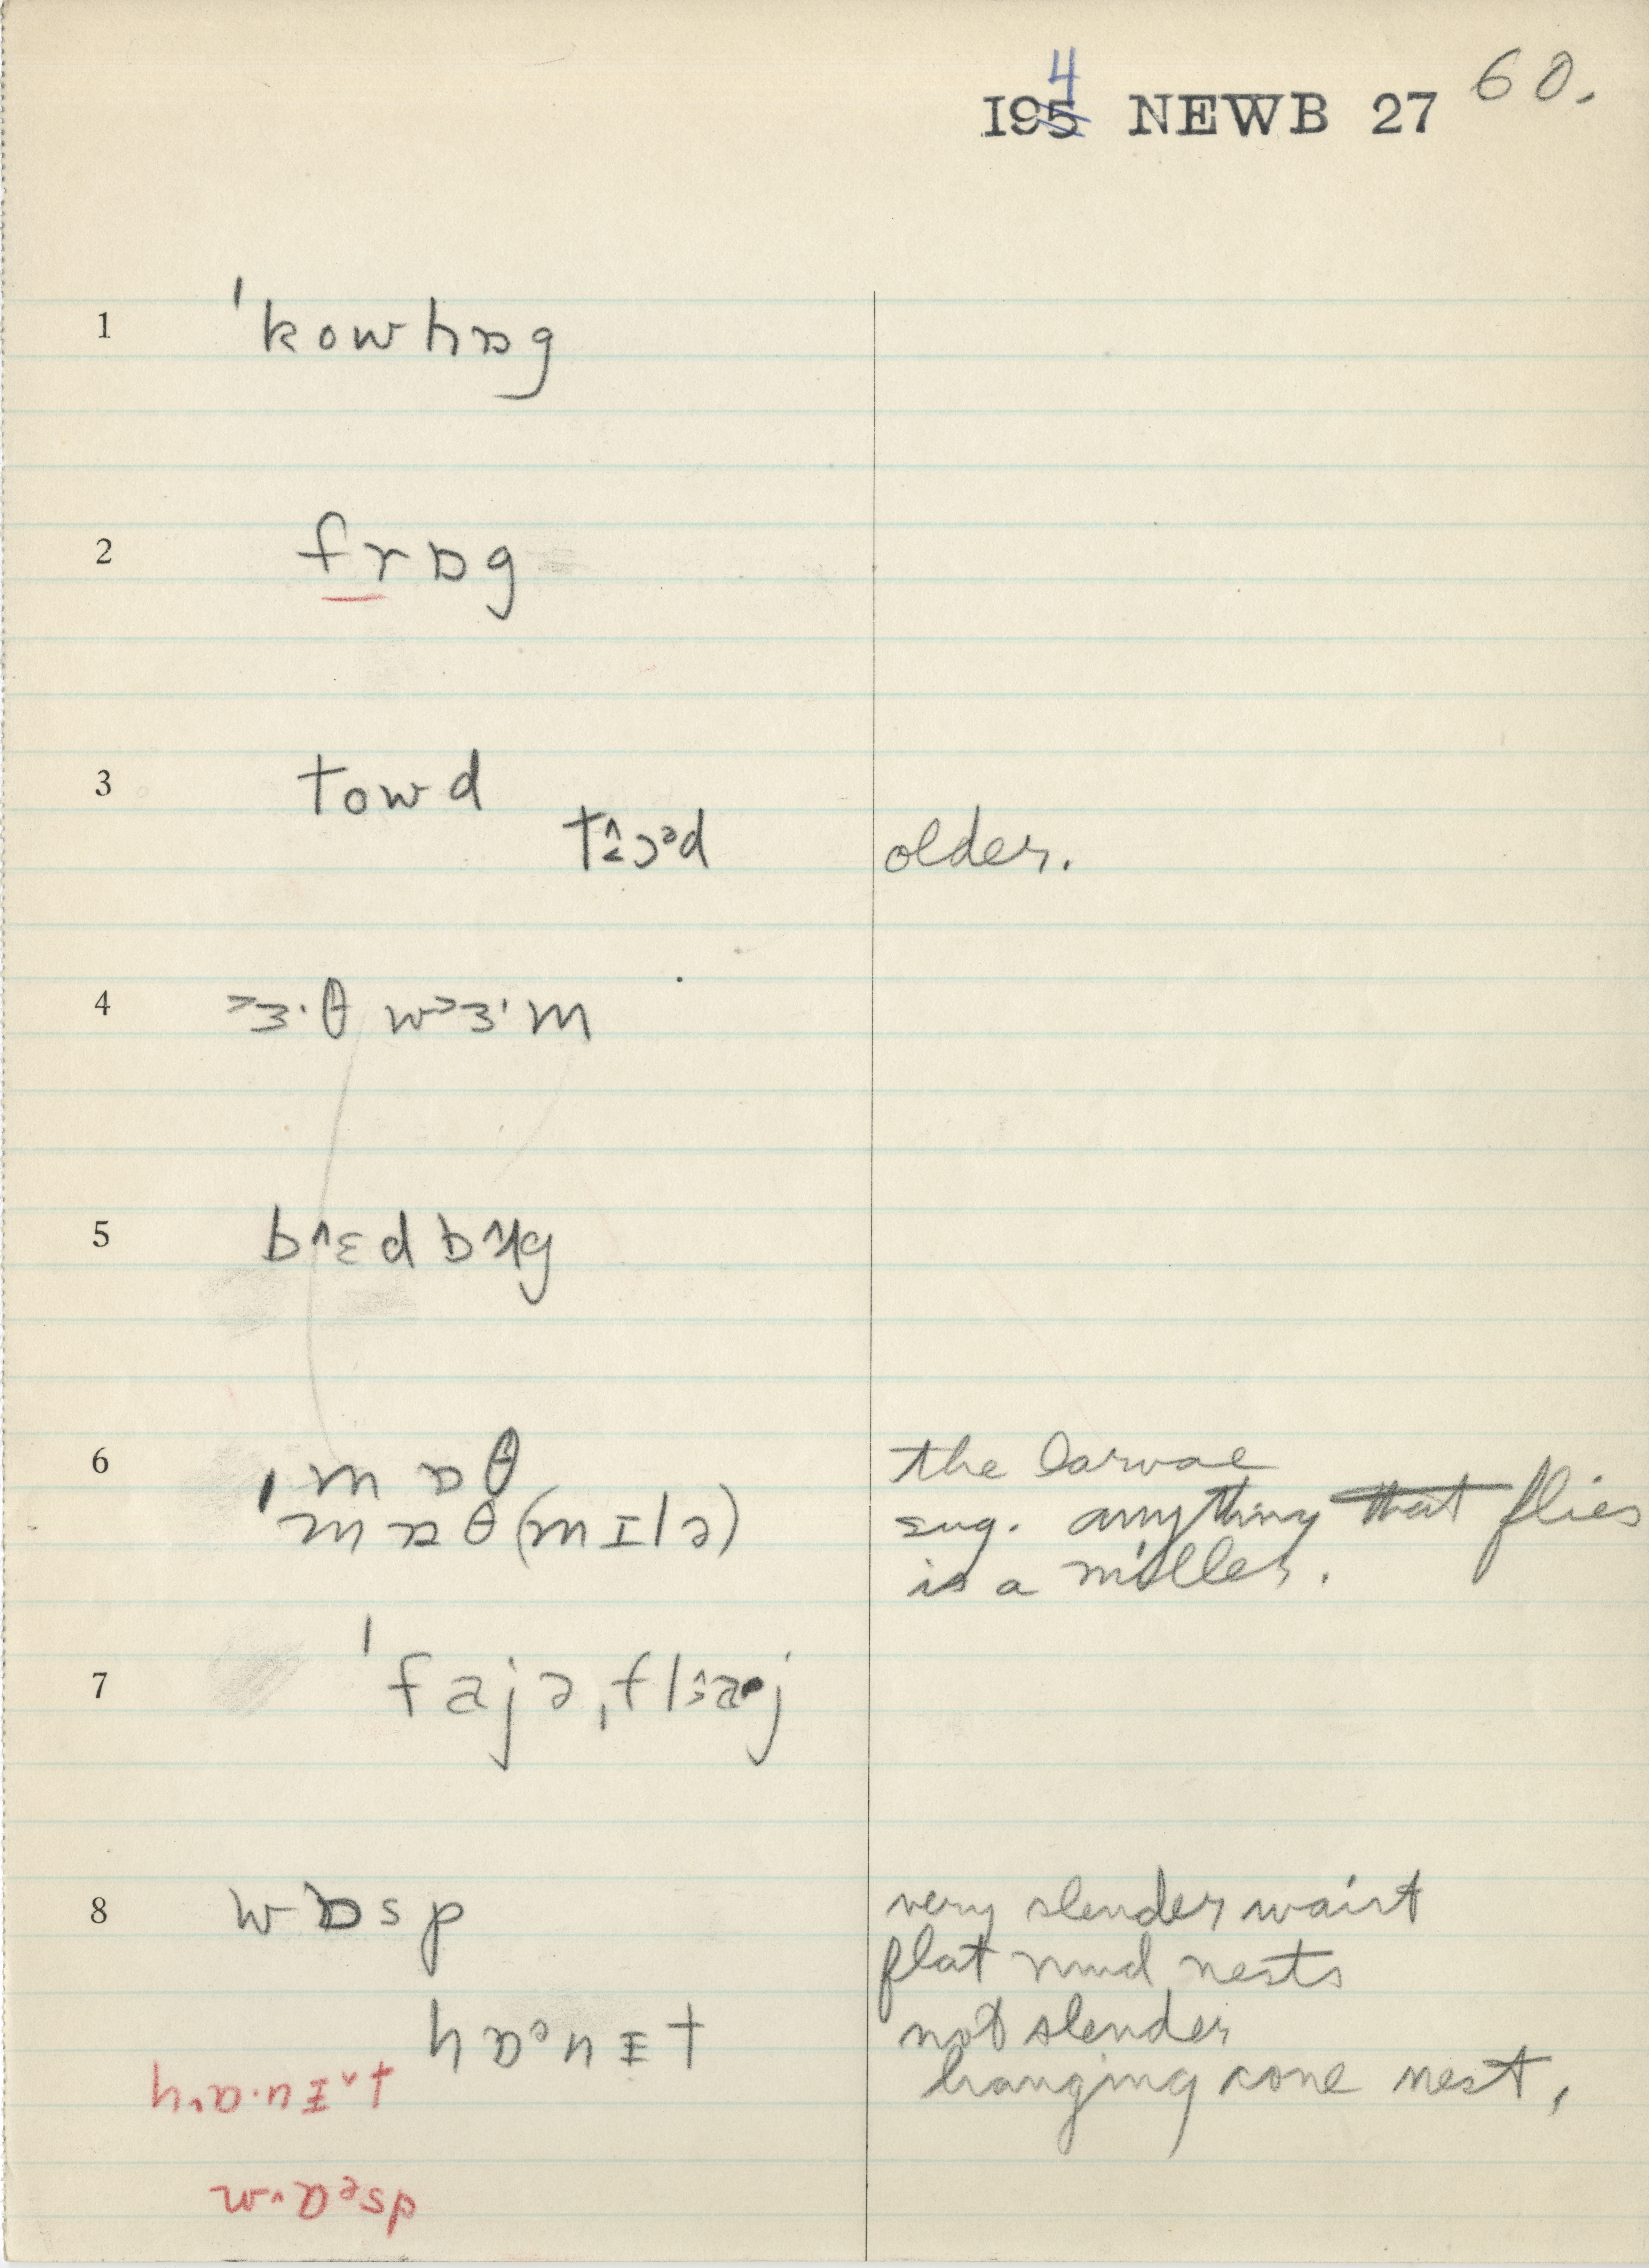 1954 NEWB 27 60.
1 ˈkowhɒg
2 frɒg
3 towd
older.
4 ɜ·θ wɜ·m
5 bɛd bʌg
6 mɒθ the larvae
mɒθ(mɪlə) sug. anything that flies
is a miller.
7 ˈfajəˌflaj
8 wɒsp very slender waist
flat mud nests
hɒənɪt not slender
hanging cone nest.